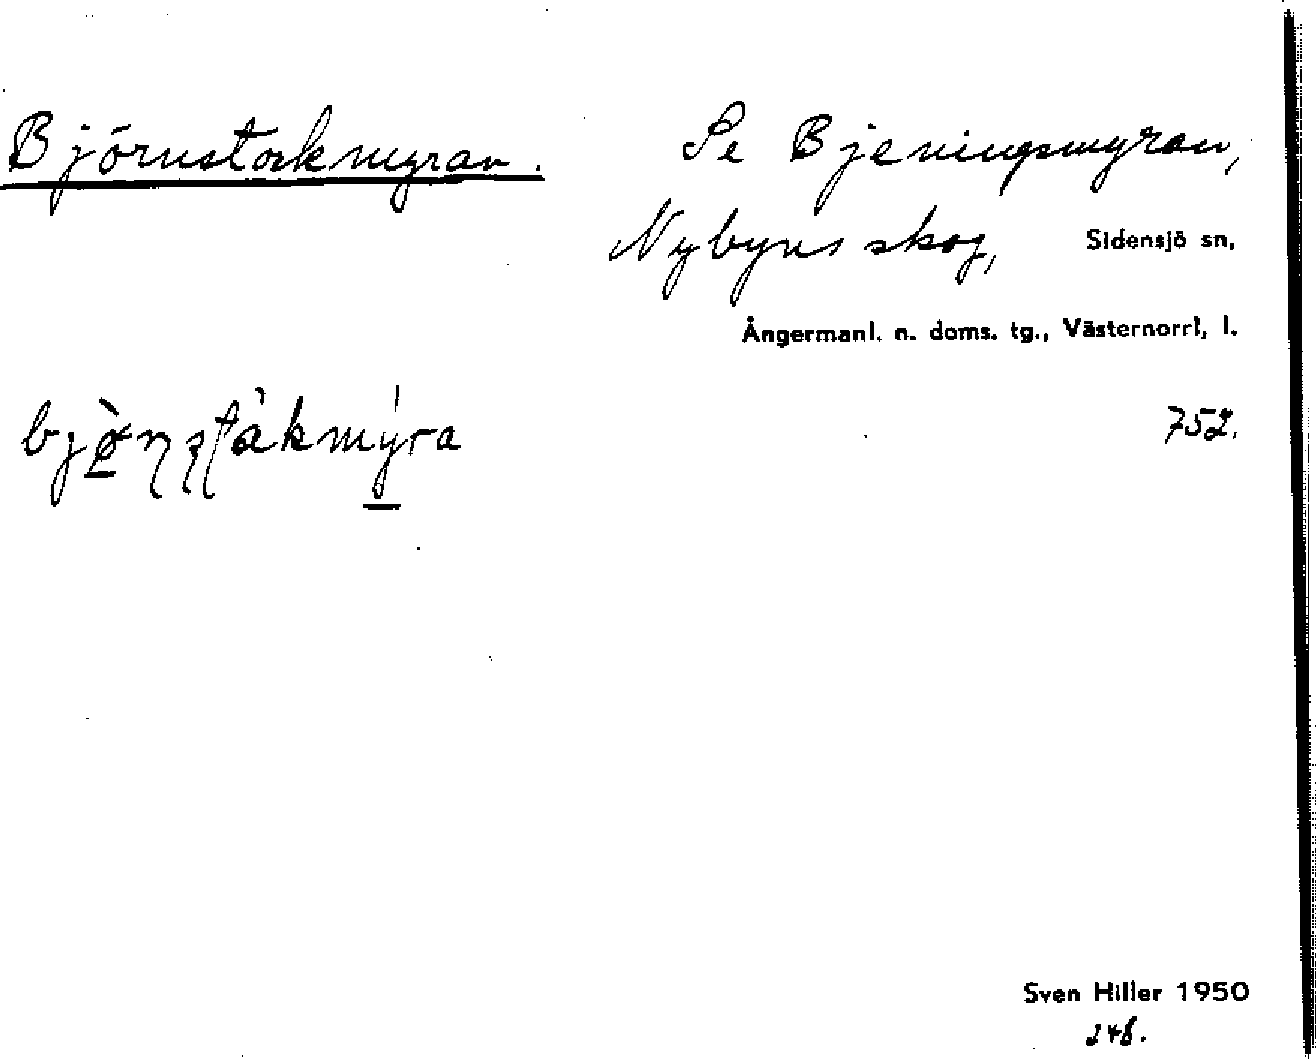 Björnstakmyran.
Se Bjeningsmyran,
Nybyns skog, Sidensjö sn,
Ångermanl. n. doms. tg., Västernorrl. l.
752.
Sven Hiller 1950
248.